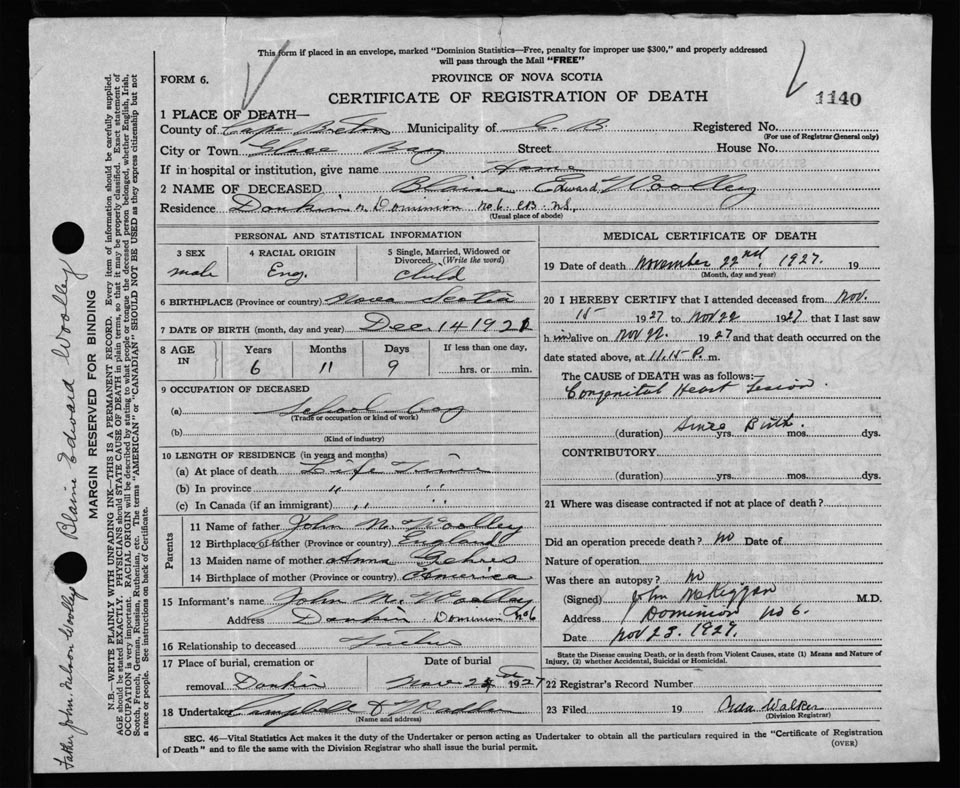 This form if placed in an envelope, marked "Dominion Statistics—Free, penalty for improper use $300," and properly addressed
will pass through the Mail "FREE"
FORM 6.
PROVINCE OF NOVA SCOTIA
CERTIFICATE OF REGISTRATION OF DEATH
1140
1 PLACE OF DEATH—
County of Cape Breton Municipality of C. B. Registered No.
(For use of Registrar General only)
City or Town Glace Bay Street House No.
If in hospital or institution, give name Home
2 NAME OF DECEASED Blaine Edward Woolley
Residence Donkin or Dominion No 6. C.B. N.S.
(Usual place of abode)
PERSONAL AND STATISTICAL INFORMATION
3 SEX 4 RACIAL ORIGIN 5 Single, Married, Widowed or
Divorced. (Write the word)
male Eng. Child
6 BIRTHPLACE (Province or country) Nova Scotia
7 DATE OF BIRTH (month, day and year) Dec 14 192
8 AGE IN Years Months Days If less than one day,
6 11 9 hrs. or min.
9 OCCUPATION OF DECEASED
(a) School boy
(Trade or occupation or kind of work)
(b)
(Kind of industry)
10 LENGTH OF RESIDENCE (in years and months)
(a) At place of death Life Time
(b) In province " "
(c) In Canada (if an immigrant) " "
Parents
11 Name of father John N. Woolley
12 Birthplace of father (Province or country) England
13 Maiden name of mother Anna
14 Birthplace of mother (Province or country) America
15 Informant's name John N. Woolley
Address Donkin. Dominion No 6
16 Relationship to deceased Father
17 Place of burial, cremation or Date of burial
removal Donkin Nov. 1927
18 Undertaker Campbell &
(Name and address)
MEDICAL CERTIFICATE OF DEATH
19 Date of death November 22nd, 1927. 19
(Month, day and year)
20 I HEREBY CERTIFY that I attended deceased from Nov.
15 1927 to Nov 22 1927 that I last saw
him alive on Nov 22. 1927 and that death occurred on the
date stated above, at 11.15 P. m.
The CAUSE of DEATH was as follows:
Congenital Heart Lesion.
Since Birth.
(duration) yrs. mos. dys.
CONTRIBUTORY
(duration) yrs. mos. dys.
21 Where was disease contracted if not at place of death?
Did an operation precede death? No Date of
Nature of operation
Was there an autopsy? No
(Signed) John McKiggan M.D.
Address Dominion No 6.
Date Nov 23. 1927.
State the Disease causing Death, or in death from Violent Causes, state (1) Means and Nature of
Injury, (2) whether Accidental, Suicidal or Homicidal.
22 Registrar's Record Number
23 Filed 19 Walker
(Division Registrar)
SEC. 46—Vital Statistics Act makes it the duty of the Undertaker or person acting as Undertaker to obtain all the particulars required in the "Certificate of Registration
of Death" and to file the same with the Division Registrar who shall issue the burial permit.
(OVER)
Father John Nelson Woolley
Blaine Edward Woolley
MARGIN RESERVED FOR BINDING
N.B.—WRITE PLAINLY WITH UNFADING INK—THIS IS A PERMANENT RECORD. Every item of information should be carefully supplied.
AGE should be stated EXACTLY. PHYSICIANS should STATE CAUSE OF DEATH in plain terms, so that it may be properly classified. Exact statement of
OCCUPATION is very important. RACIAL ORIGIN will be described by stating to what people or tongue the deceased person belonged, whether English, Irish,
Scotch, French, German, Russian, Ruthenian, etc. The terms "AMERICAN" or "CANADIAN" SHOULD NOT BE USED as they express citizenship but not
a race or people. See instructions on back of Certificate.